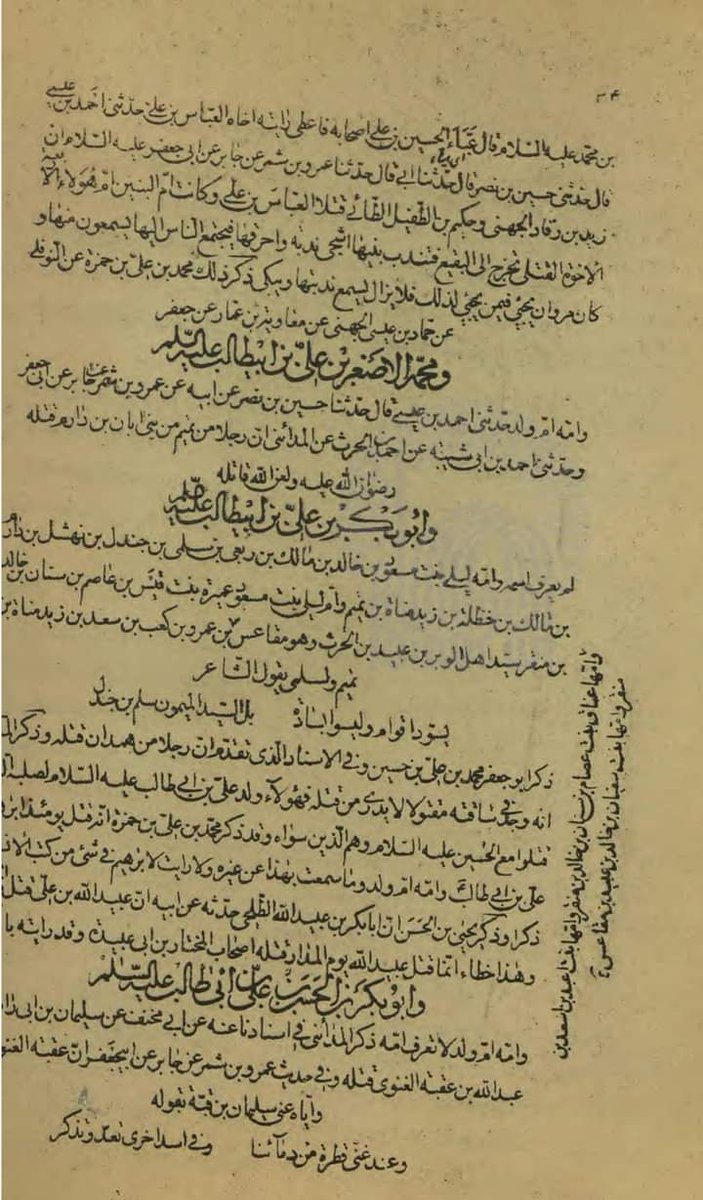 ٣٤
بن محمد عليه السلام قال عبّاء الحسين بن علي اصحابه فاعطى رايته اخاه العباس بن علي حدثني احمد بن عيسى
قال حدثني حسين بن نصر قال حدثنا ابي قال حدثنا عمرو بن شمر عن جابر عن ابي جعفر عليه السلام ان
زيد بن رقاد الجهني وحكيم بن الطفيل الطائي قتلا العباس بن علي وكانت ام البنين ام هولاء الاربعة
الاخوة القتلى تخرج الى البقيع فتندب بنيها اشجى ندبة واحرقها فيجتمع الناس اليها يسمعون منها و
كان مروان يجئ فيمن يجئ لذلك فلا يزال يسمع ندبتها ويبكى ذكر ذلك محمد بن علي بن حمزة عن النوفلى
عن حماد بن عيسى الجهني عن معاوية بن عمار عن جعفر
ومحمد الاصغر بن علي بن ابيطالب عليه السلم
وامه ام ولد حدثني احمد بن عيسى قال حدثنا حسين بن نصر عن ابيه عن عمرو بن شمر عن جابر عن ابى جعفر
وحدثني احمد بن ابي شيبة عن احمد بن الحرث عن المدائني ان رجلا من تميم من بني ابان بن دارم قتله
رضوان الله عليه ولعن الله قاتله
وابو بكر بن علي بن ابيطالب عليه السلم
لم يعرف اسمه وامه ليلى بنت مسعود بن خالد بن مالك بن ربعى بن سلمى بن جندل بن نهشل بن دارم
بن مالك بن حنظلة بن زيد مناة بن تميم وام ليلى بنت مسعود عميرة بنت قيس بن عاصم بن سنان بن خالد
بن منقر سيد اهل الوبر بن عبيد بن الحرث وهو مقاعس بن عمرو بن كعب بن سعد بن زيد مناة بن
تميم ولسلمى يقول الشاعر
يسود اقوام وليسوا بسادة بل السيد الميمون سلم بن جندل
ذكر ابو جعفر محمد بن علي بن حسين وفي الاسناد الذي تقدم ان رجلا من همدان قتله وذكر
انه وجد في ساقية مقتولا لا يدرى من قتله فهولاء ولد علي بن ابي طالب عليه السلام لصلبه
قتلوا مع الحسين عليه السلام وهم الذين سواء وقد ذكر محمد بن علي بن حمزة انه قتل يومئذ
علي بن ابي طالب وامه ام ولد وما سمعت بهذا عن غيره ولا رايت لابرهيم في شئ من كتب
ذكرا وذكر يحيى بن الحسن ان ابا بكر بن عبيد الله الطلحى حدثه عن ابيه ان عبيد الله بن علي قتل
وهذا خطاء انما قتل عبيد الله يوم المذار قتله اصحاب المختار بن ابي عبيدة وقد رايته
وابو بكر بن الحسن بن علي بن ابي طالب عليه السلم
وامه ام ولد لا تعرف امه ذكر المدائني في اسنادنا عنه عن ابي مخنف عن سليمان بن ابي
عبد الله بن عقبة الغنوى قتله وفي حديث عمرو بن شمر عن جابر عن ابيجعفر ان عقبة
واياه عنى سليمان بن قتة بقوله
وعند غنى قطرة من دمائنا وفي اسد اخرى تعد وتذكر
وامها عناق بنت عصام بن سنان بن خالد بن منقر وامها بنت اعبد بن اسعد بن
منقر وامها بنت سفيان بن خالد بن عبيد بن مقاعس